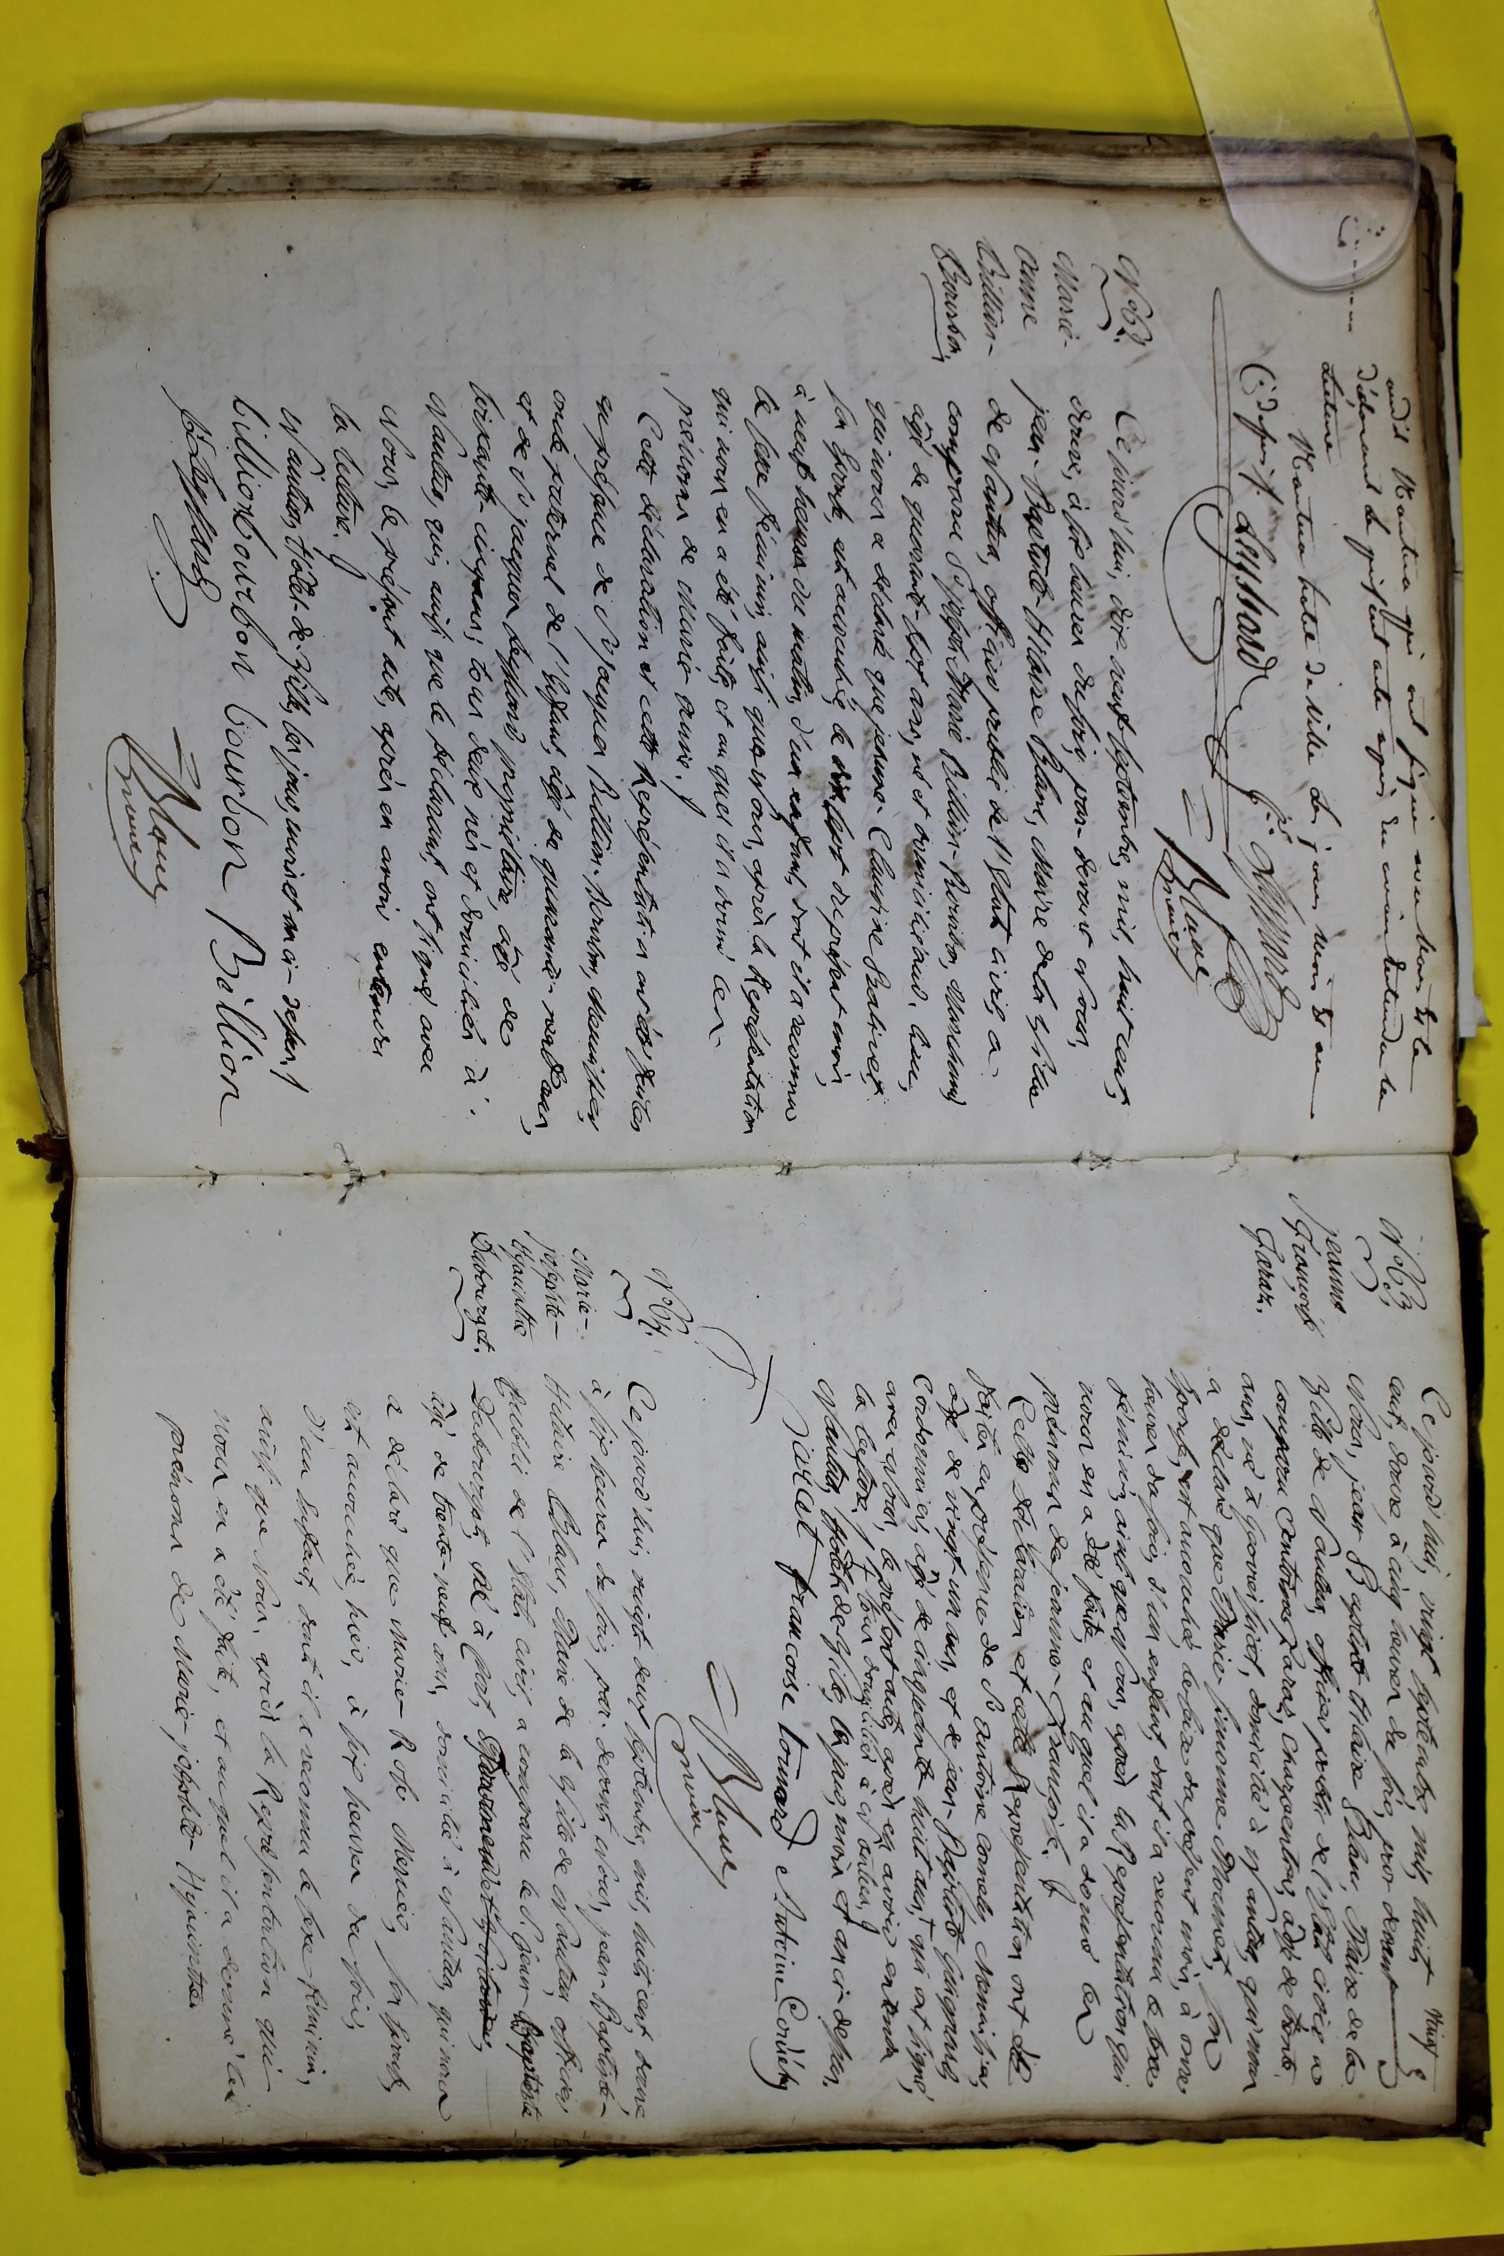 audit Nantua qui ont signé avec Nous et le
déclarant le présent acte après en avoir entendu la
lecture
Nantua hotel de Ville les jour mois et an
Ci dessus
Leyssard
Blanc
maire
N.° 62.
Marie-
anne
Billion-
Bourbon
Ce jourd'hui, dix neuf septembre, mil, huit cent,
douze, à six heures du soir, par-devant Nous,
jean-Baptiste-Hilaire Blanc, Maire de la Ville
de Nantua, officier public de l'Etat civil, a
comparu S.r joseph Marie Billion-Bourbon, Marchand,
âgé de quarante-sept ans, né et domicilié aud. lieu,
qui nous a déclaré que jeanne Claudine
son Epouse, est accouchée, le dix sept du présent mois,
à neuf heures du matin, d'un enfant, dont il a reconnu
le sexe féminin, ainsi que Nous, après la Représentation
qui nous en a été faite, et au quel il a donné les
prénoms de Marie-anne.
Cette déclaration et cette Représentation ont été faites
en présence de S.r jacques Billion-Bourbon, Menuisier,
oncle paternel de l'Enfant, âgé de quarante-neuf ans,
et de S.r jacques Leyssard, propriétaire, âgé de
soixante-cinq ans; tous deux nés et domiciliés à
Nantua, qui, ainsi que le déclarant, ont signé avec
Nous, le présent acte, après en avoir entendu
la lecture.
Nantua, Hôtel-de-Ville, les jour, mois et an ci-dessus.
billion bourbon bourbon Billion
Leyssard
Blanc
maire
Vingt
N.° 63.
jeanne
Françoise
Zaraz.
Ce jourd'hui, vingt septembre, mil, huit
cent, douze, à cinq heures du soir, par devant
Nous, jean Baptiste Hilaire Blanc, Maire de la
Ville de Nantua, officier public de l'Etat civil a
comparu Antoine Zaraz, charpentier, âgé de trente
ans, né à domicilié à Nantua, qui nous
a déclaré que Marie-simonne son
Epouse, est accouchée, le seize du présent mois, à onze
heures du soir, d'un enfant, dont il a reconnu le sexe
féminin, ainsi que Nous, après la Représentation qui
nous en a été faite, et au quel il a donné les
prénoms de jeanne-Françoise.
Cette déclaration et cette Représentation ont été
faites en présence de S.r antoine Menuisier,
âgé de vingt-un ans, et de jean-Baptiste
Cordonnier, âgé de cinquante huit ans, qui ont signé,
avec Nous, le présent acte, après en avoir entendu
la lecture, tous domiciliés à Nantua,
Nantua, Hôtel de Ville, les jour, mois et an ci dessus.
francoise
Antoine
Blanc
maire
N.° 64.
Marie-
josephte-
Hyacinthe
Dubourget.
Ce jourd'hui, vingt deux septembre, mil, huit cent douze
à six heures du soir, par-devant Nous, jean-Baptiste-
Hilaire Blanc, Maire de la Ville de Nantua, officier
Public de l'Etat civil, a comparu le S.r jean Baptiste
Dubourget, né à
âgé de trente-neuf ans, domicilié à Nantua, qui nous
a déclaré que Marie-Rose Mercier, son Epouse,
est accouchée, hier, à six heures du soir,
d'un Enfant, dont il a reconnu le sexe féminin,
ainsi que Nous, après la Représentation qui
nous en a été faite, et au quel il a donné les
prénoms de Marie-josephte-Hyacinthe